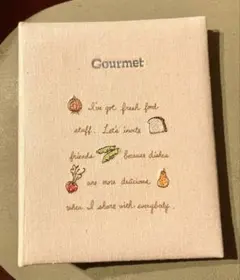 Gourmet
I've got fresh food
stuff. Let's invite
friends because dishes
are more delicious
when I share with everybody.